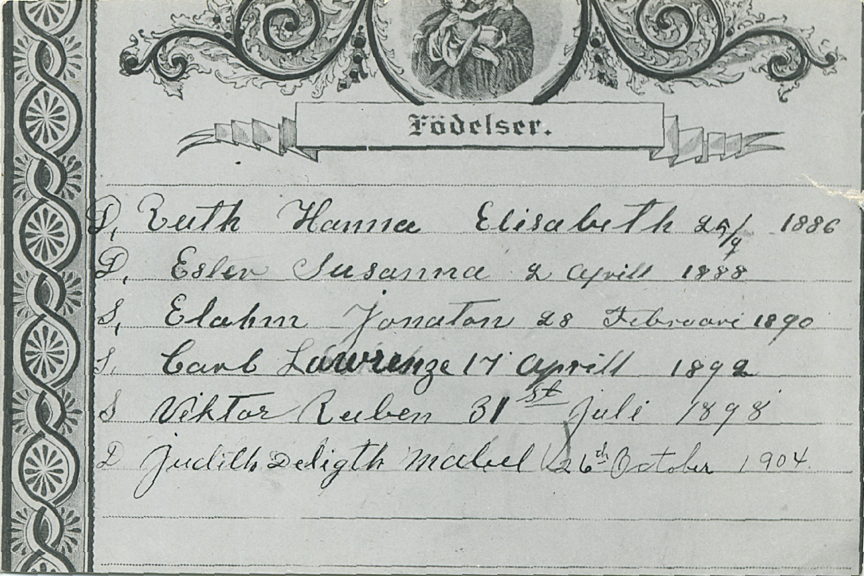 Födelser.
D, Ruth Hanna Elisabeth 25/9 1886
D, Ester Susanna 2 Aprill 1888
S, Elahm Jonaton 28 Februari 1890
S, Carl Lawrenze 17 Aprill 1892
S Viktor Reuben 31st Juli 1898
D Judith Deligth Mabel 26th October 1904.